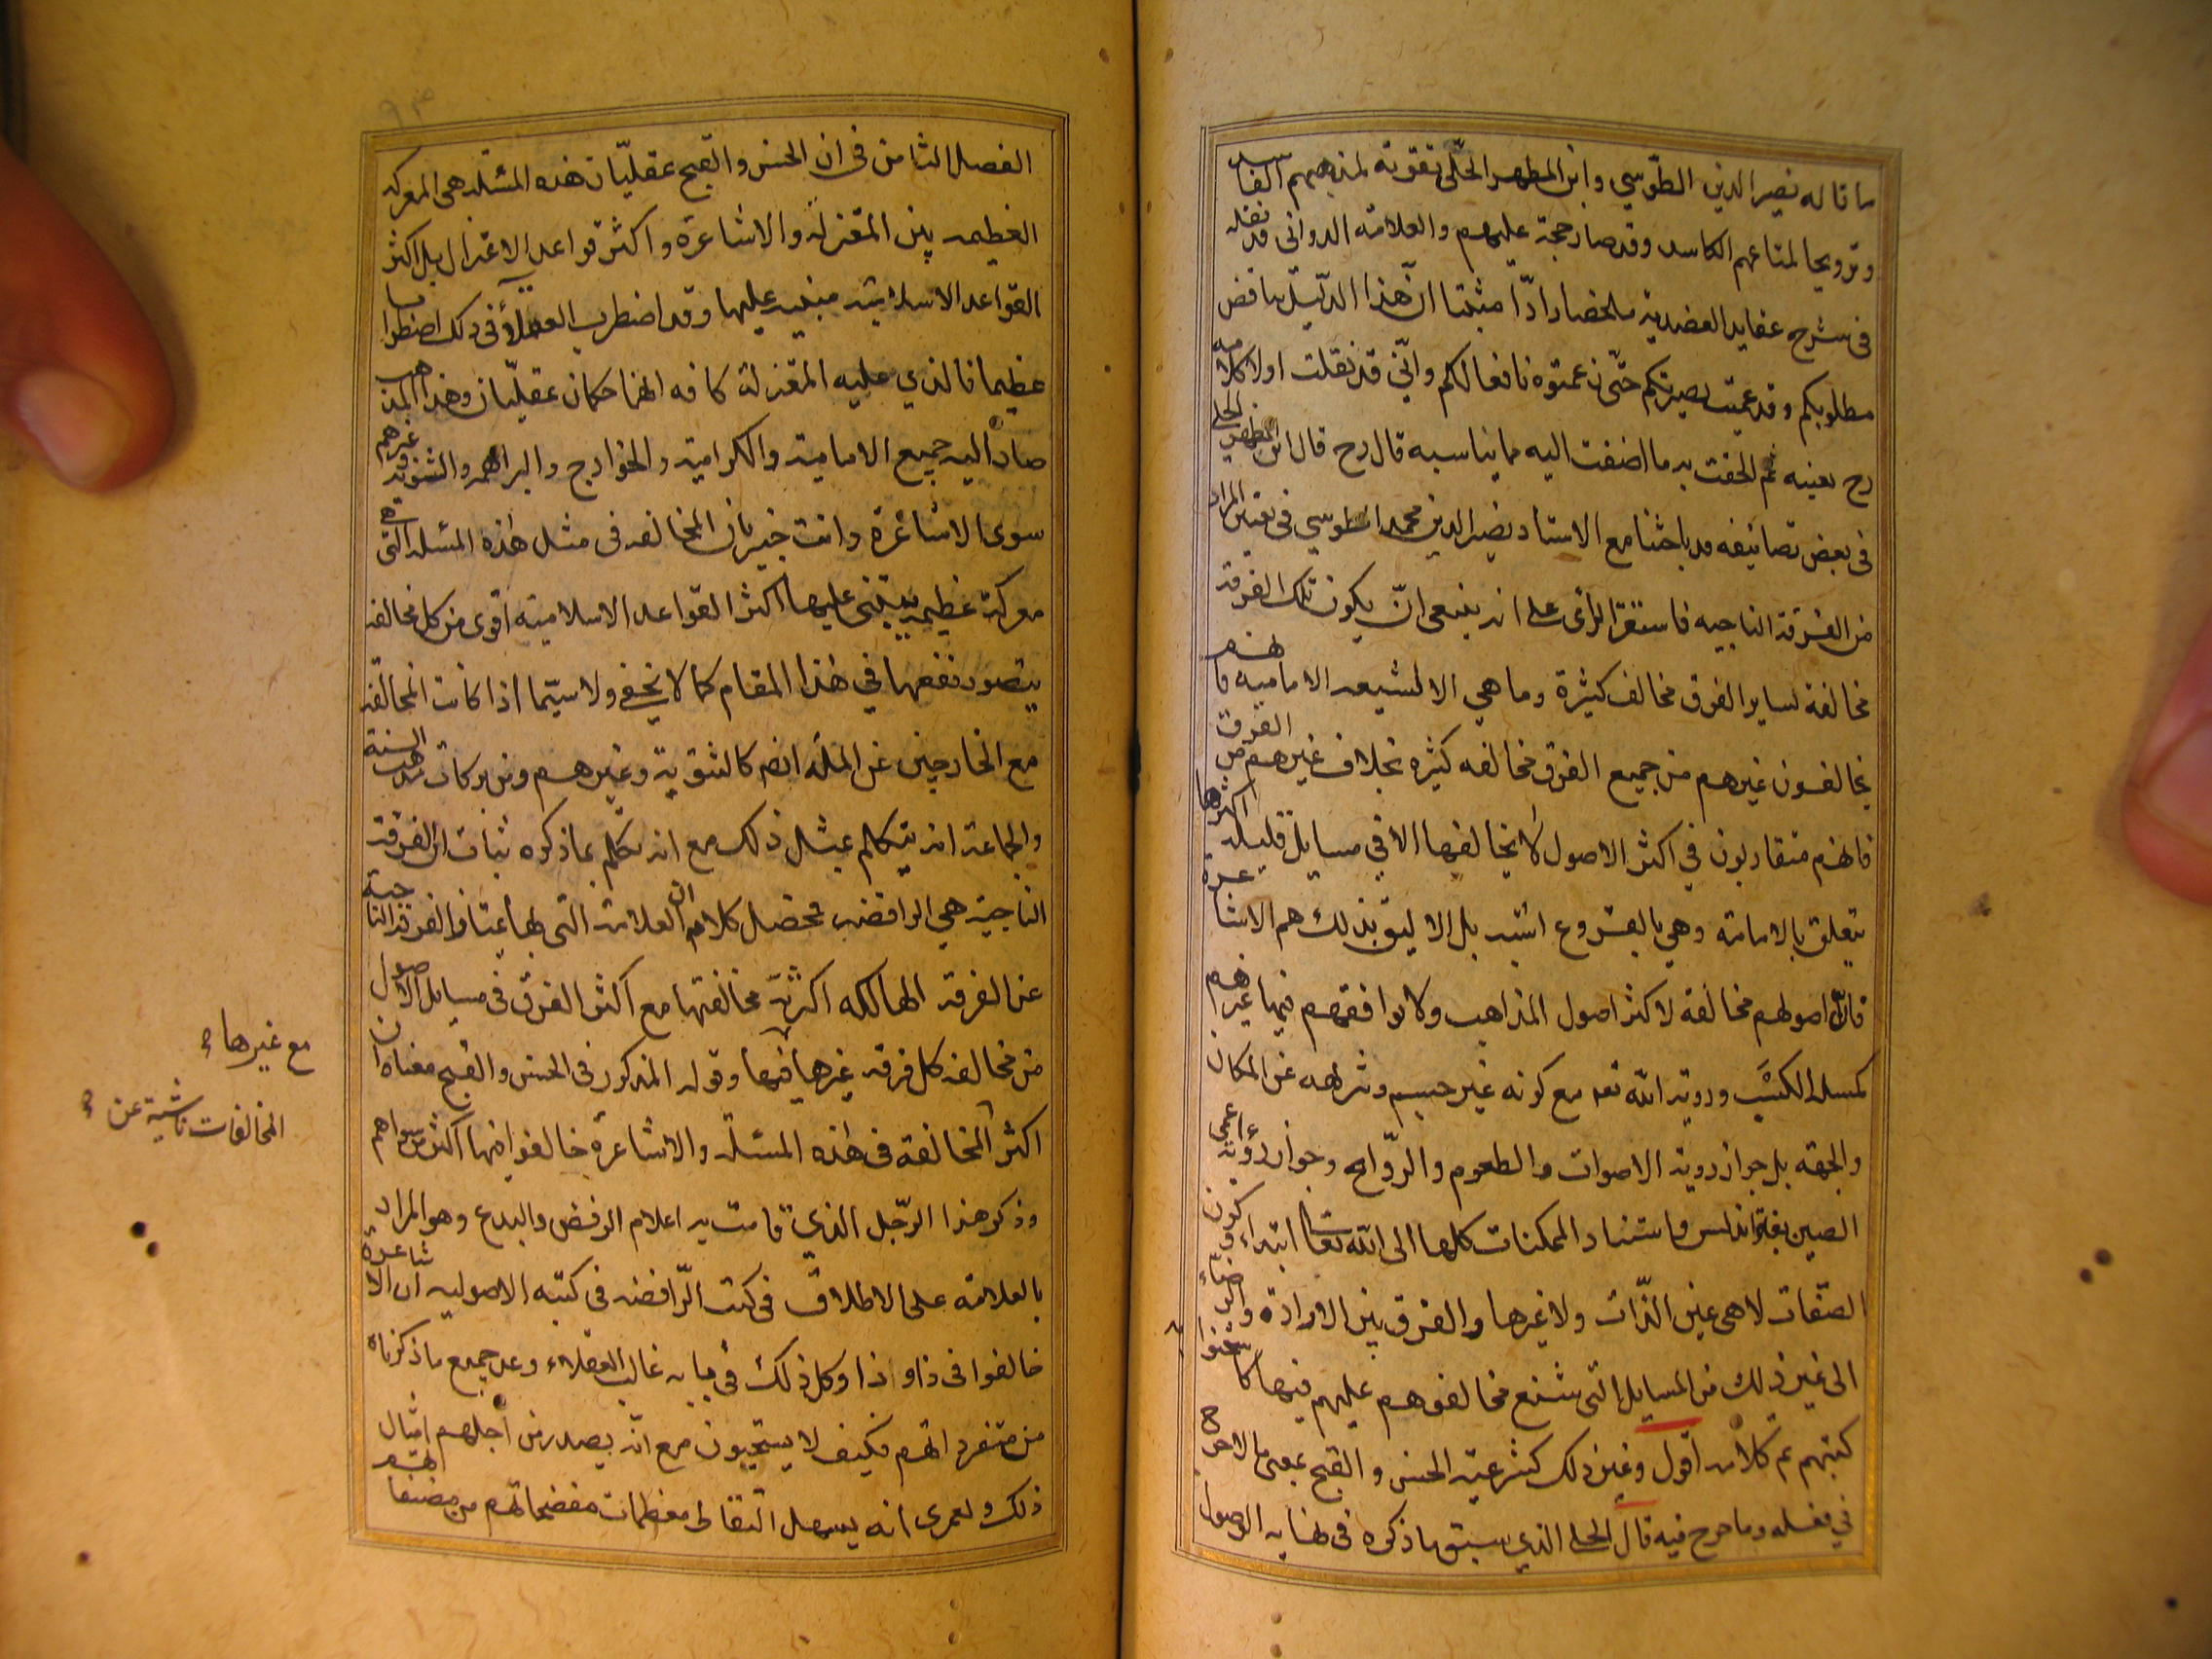 ما قاله نصير الدين الطوسي وابن المطهر الحلّى تقوية لمذهبهم الفاسد
وترويجا لمتاعهم الكاسد وقد صار حجة عليهم والعلامة الدوانى قد نقله
فى شرح عقايد العضدية ملخصا رادّا مثبتا انّ هذا الدّليل يناقض
مطلوبكم وقد عميت بصيرتكم حتّى زعمتوه نافعا لكم وانّى قد نقلت اولا كلامه
رح بعينه ثم الحقت به ما اضفت اليه مما يناسبه قال رح قال ابن المطهر الحلى
فى بعض تصانيفه قد باحثنا مع الاستاد نصير الدين محمد الطوسي فى تعيين المراد
من الفرقة الناجيه فاستقر الراى على انه ينبغى انّ يكون تلك الفرقة
مخالفة لساير الفرق مخالف كثيرة وما هي الا الشيعه الامامية فانهم
يخالفون غيرهم من جميع الفرق مخالفه كثيره بخلاف غيرهم من الفرق
فانهم متقاربون في اكثر الاصول لا يخالفها الا في مسايل قليله اكثرها
يتعلق بالامامة وهي بالفروع اشبه بل الا ليق بذلك هم الاشاعرة
فانّ اصولهم مخالفة لاكثر اصول المذاهب ولا يوافقهم فيها غيرهم
كمسله الكسب وروية الله تعه مع كونه غير جسم وتنزهه عن المكان
والجهة بل جواز روية الاصوات والطعوم والرّوايح وجواز روية اعمى
الصين بقة اندلس واستناد الممكنات كلها الى الله تعالى ابتداء وكون
الصّفات لا هى عين الذّات ولا غيرها والفرق بين الارادة والرضاء
الى غير ذلك من المسايل التى شنع مخالفوهم عليهم فيها كما شحنوا
كتبهم تم كلامه اقول وغير ذلك كشرعية الحسن والقبح بمعنى ما لا حرج
في فعله وما حرج فيه قال الحلى الذي سبق ما ذكره فى نهاية الوصول
الفصل الثامن فى ان الحسن والقبح عقليّان هذه المسئله هى المعركه
العظيمه بين المعتزلة والاشاعرة واكثر قواعد الاعتزال بل اكثر
القواعد الاسلامية مبنيه عليها وقد اضطرب العقلاء فى ذلك اضطرابا
عظيما فالذي عليه المعتزلة كافه انهما حكمان عقليّان وهذا المذهب
صار اليه جميع الامامية والكرامية والخوارج والبراهمه والثنويه وغيرهم
سوى الاشاعرة وانت خبير بان المخالفه فى مثل هذه المسئله التى هى
معركة عظيمه يبتنى عليها اكثر القواعد الاسلامية اقوى من كل مخالفه
يتصور نفعها في هذا المقام كما لا يخفى ولا سيّما اذا كانت المخالفه
مع الخارجين عن الملّه ايضه كالثنوية وغيرهم ومن بركات مذهب السنة
والجماعة انه يتكلم بمثل ذلك مع انه تكلم بما ذكره بثبات ان الفرقة
الناجية هي الرافضه فمحصل كلامه ان العلامة التى بها يمتاز الفرقة الناجية
عن الفرقة الهالكه اكثرية مخالفتها مع اكثر الفرق فى مسايل الاصول
من مخالفه كل فرقه غيرها فيها وقوله المذكور فى الحسن والقبح معناه ان
اكثر المخالفة فى هذه المسئلة والاشاعرة خالفوا فيها اكثر من سواهم
وذكر هذا الرّجل الذي قامت به اعلام الرفض والبدع وهو المراد
بالعلامة على الاطلاق فى كتب الرّافضه فى كتبه الاصوليه ان الاشاعرة
خالفوا فى ذا وذا وكل ذلك فى مباينه غالب العقلاء وعد جميع ما ذكرناه
من متفرداتهم فكيف لا يستحيون مع انّه يصدر من اجلهم امثال
ذلك ولعمرى انه يسهل التقاط معظمات مفضحاتهم من مصنفاتهم
مع غيرها
المخالفات ناشية عن